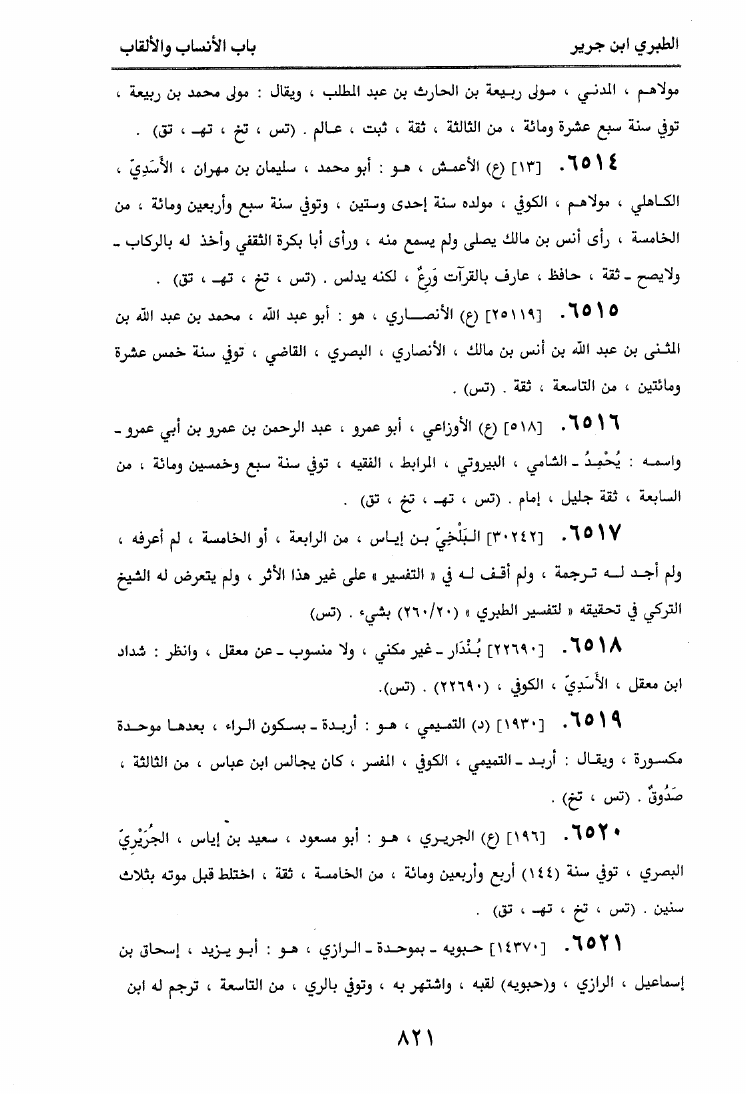 الطبري ابن جرير باب الأنساب والألقاب
مولاهم ، المدني ، مولى ربيعة بن الحارث بن عبد المطلب ، ويقال : مولى محمد بن ربيعة ،
توفي سنة سبع عشرة ومائة ، من الثالثة ، ثقة ، ثبت ، عالم . (تس ، تخ ، تهـ ، تق) .
٦٥١٤. [١٣] (ع) الأعمش ، هو : أبو محمد ، سليمان بن مهران ، الأَسَدِيّ ،
الكاهلي ، مولاهم ، الكوفي ، مولده سنة إحدى وستين ، وتوفي سنة سبع وأربعين ومائة ، من
الخامسة ، رأى أنس بن مالك يصلى ولم يسمع منه ، ورأى أبا بكرة الثقفي وأخذ له بالركاب ـ
ولايصح ـ ثقة ، حافظ ، عارف بالقرآت وَرِعٌ ، لكنه يدلس . (تس ، تخ ، تهـ ، تق) .
٦٥١٥. [٢٥١١٩] (ع) الأنصاري ، هو : أبو عبد الله ، محمد بن عبد الله بن
المثنى بن عبد الله بن أنس بن مالك ، الأنصاري ، البصري ، القاضي ، توفي سنة خمس عشرة
ومائتين ، من التاسعة ، ثقة . (تس) .
٦٥١٦. [٥١٨] (ع) الأوزاعي ، أبو عمرو ، عبد الرحمن بن عمرو بن أبي عمرو ـ
واسمه : يُحْمِدُ ـ الشامي ، البيروتي ، المرابط ، الفقيه ، توفي سنة سبع وخمسين ومائة ، من
السابعة ، ثقة جليل ، إمام . (تس ، تهـ ، تخ ، تق) .
٦٥١٧. [٣٠٢٤٢] البَلْخِيّ بن إياس ، من الرابعة ، أو الخامسة ، لم أعرفه ،
ولم أجد له ترجمة ، ولم أقف له في « التفسير » على غير هذا الأثر ، ولم يتعرض له الشيخ
التركي في تحقيقه « لتفسير الطبري » (٢٦٠/٢٠) بشيء . (تس)
٦٥١٨. [٢٢٦٩٠] بُنْدَار ـ غير مكني ، ولا منسوب ـ عن معقل ، وانظر : شداد
ابن معقل ، الأَسَدِيّ ، الكوفي ، (٢٢٦٩٠) . (تس).
٦٥١٩. [١٩٣٠] (د) التميمي ، هو : أربدة ـ بسكون الراء ، بعدها موحدة
مكسورة ، ويقال : أربد ـ التميمي ، الكوفي ، المفسر ، كان يجالس ابن عباس ، من الثالثة ،
صَدُوقٌ . (تس ، تخ) .
٦٥٢٠. [١٩٦] (ع) الجريري ، هو : أبو مسعود ، سعيد بن إياس ، الجُرَيْرِيّ
البصري ، توفي سنة (١٤٤) أربع وأربعين ومائة ، من الخامسة ، ثقة ، اختلط قبل موته بثلاث
سنين . (تس ، تخ ، تهـ ، تق) .
٦٥٢١. [١٤٣٧٠] حبويه ـ بموحدة ـ الرازي ، هو : أبو يزيد ، إسحاق بن
إسماعيل ، الرازي ، و(حبويه) لقبه ، واشتهر به ، وتوفي بالري ، من التاسعة ، ترجم له ابن
٨٢١